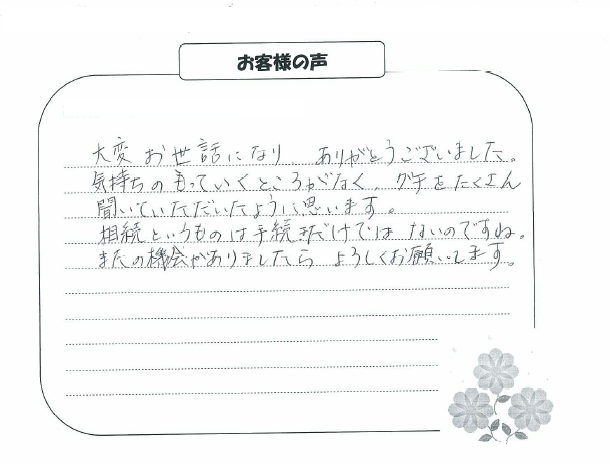 お客様の声
大変お世話になり ありがとうございました。
気持ちのもっていくところがなく、グチをたくさん
聞いていただいたように思います。
相続というものは手続きだけでは ないのですね。
またの機会がありましたら よろしくお願いします。